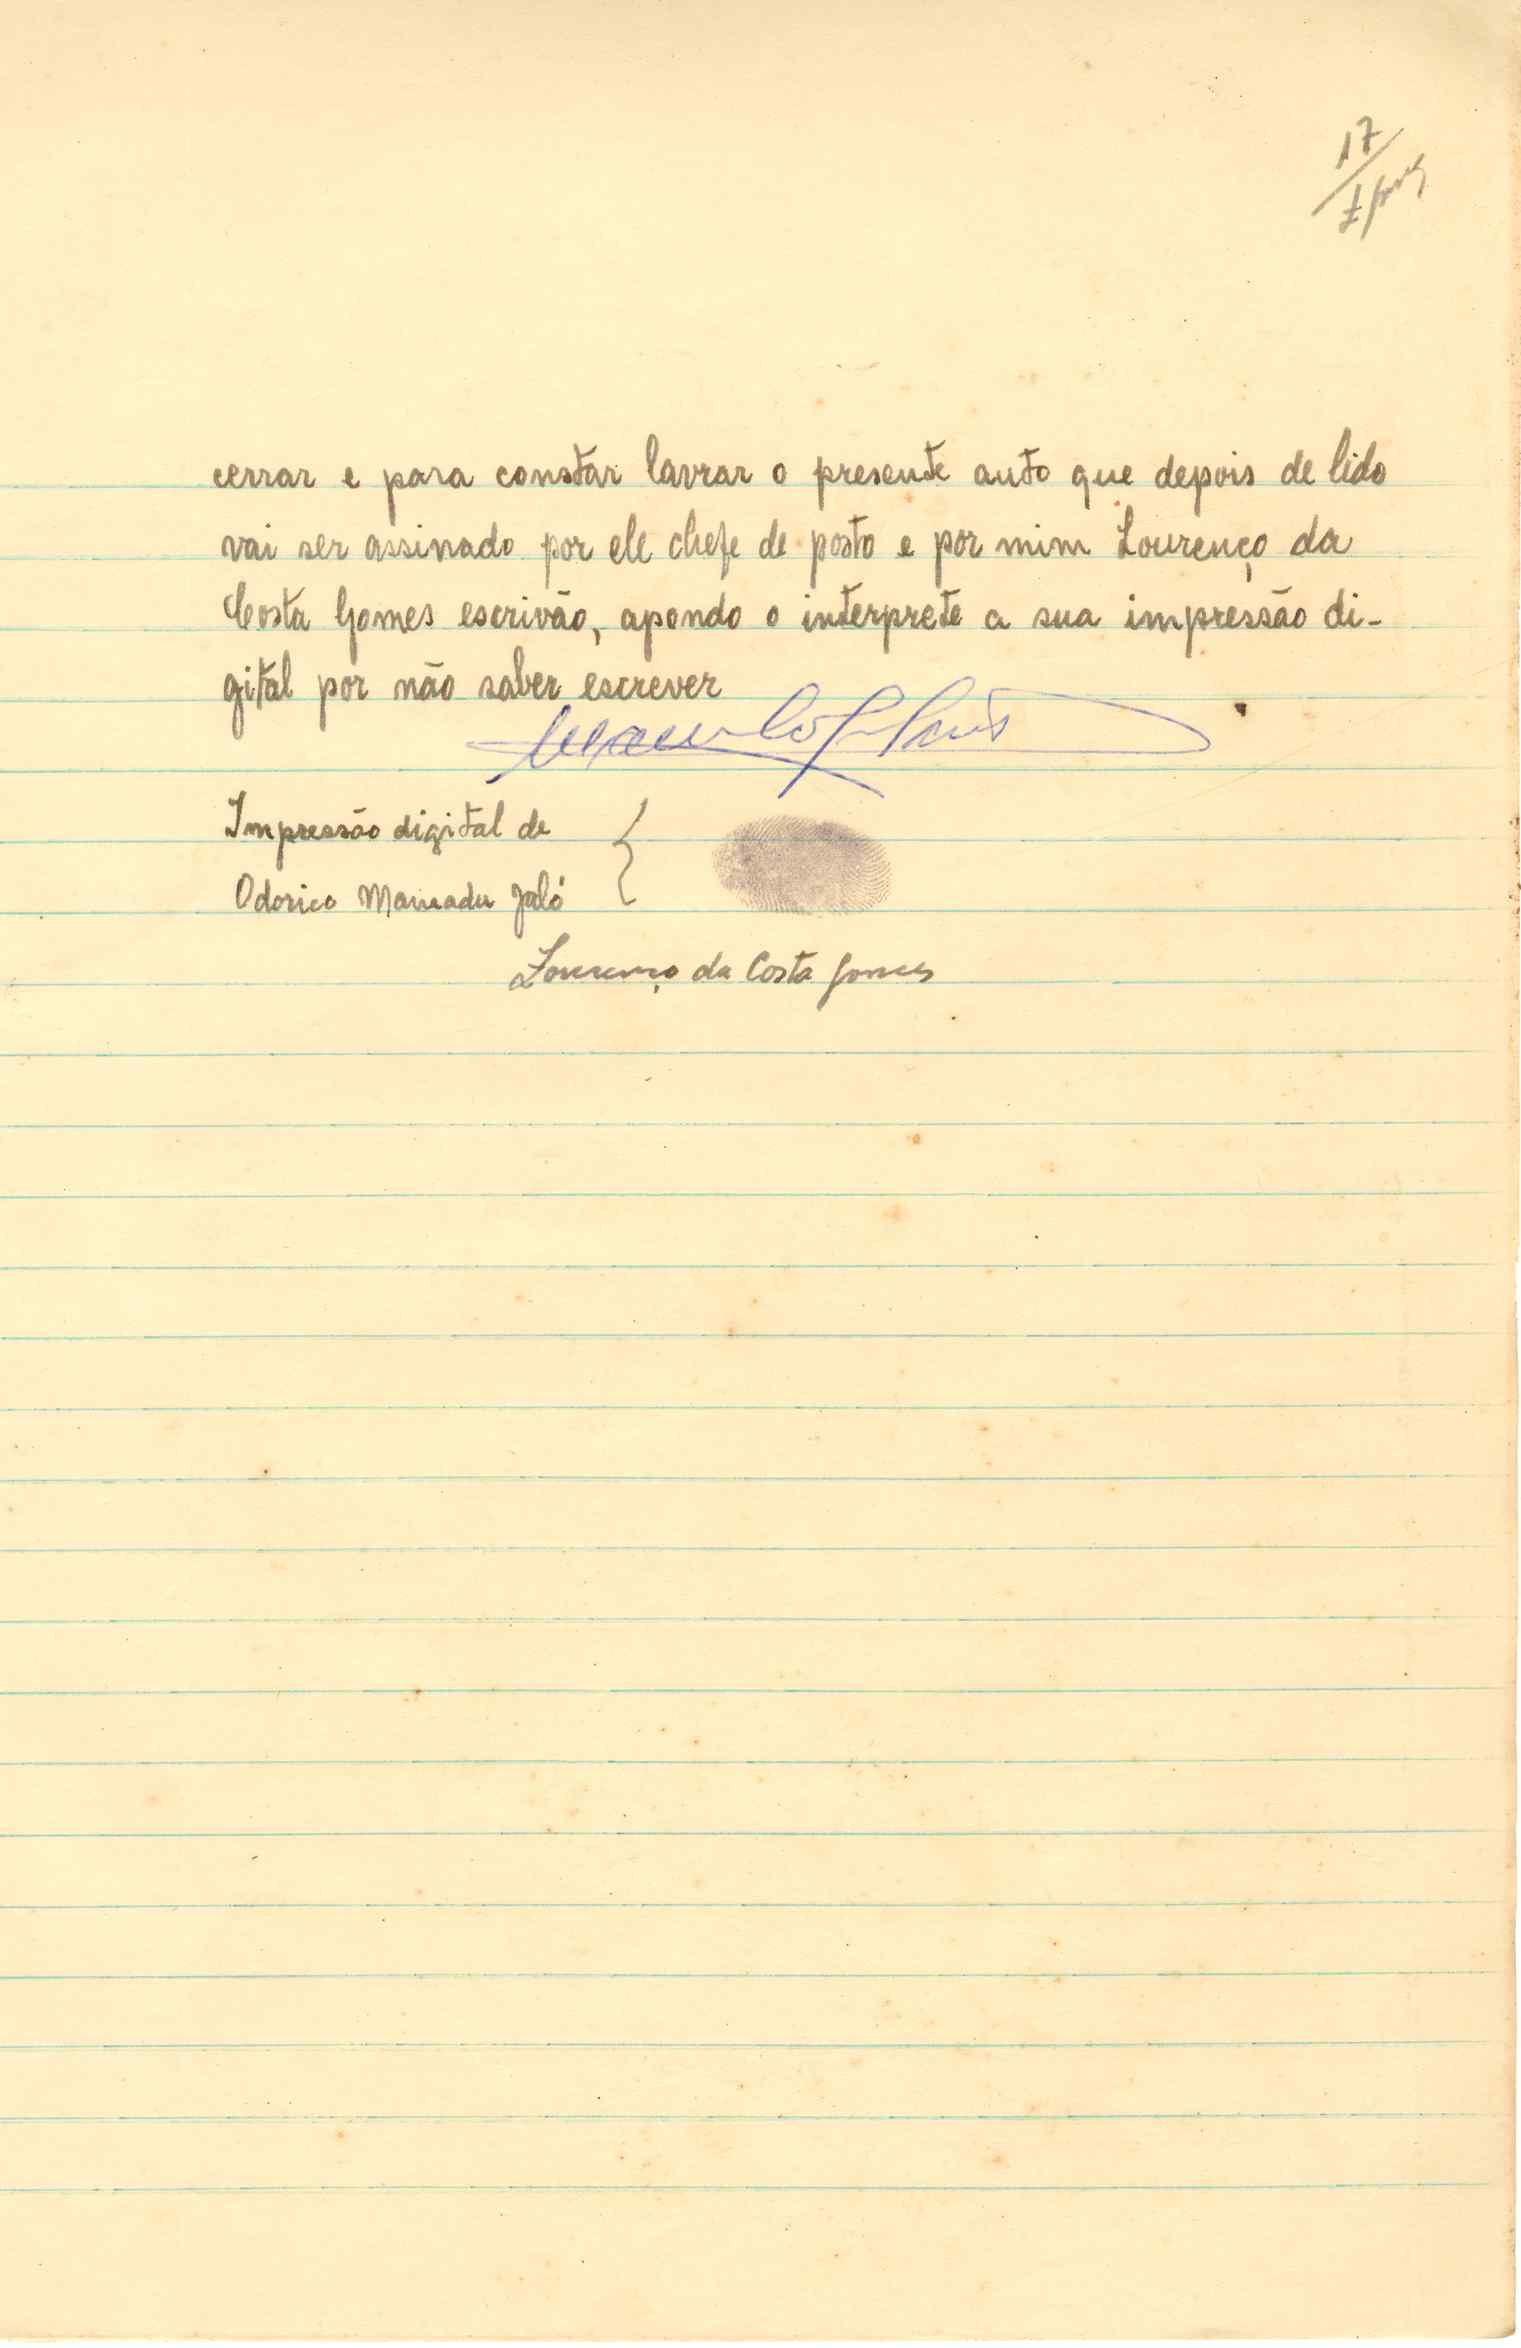 17
cerrar e para constar lavrar o presente auto que depois de lido
vai ser assinado por ele chefe de posto e por mim Lourenço da
Costa Gomes escrivão, apondo o interprete a sua impressão di-
gital por não saber escrever
Impressão digital de
Odorico Mamadu Jaló
Lourenço da Costa Gomes